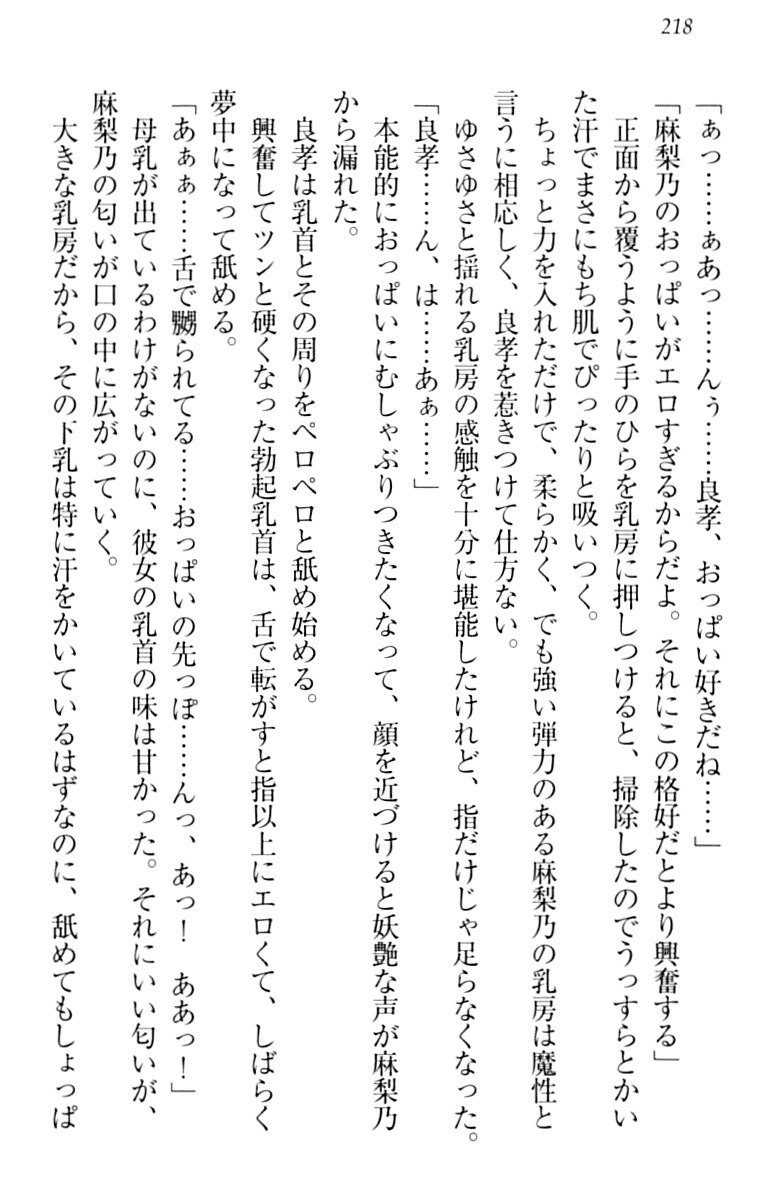 218
「ぁっ……ぁあっ……んぅ……良孝、おっぱい好きだね……」
「麻梨乃のおっぱいがエロすぎるからだよ。それにこの格好だとより興奮する」
　正面から覆うように手のひらを乳房に押しつけると、掃除したのでうっすらとかい
た汗でまさにもち肌でぴったりと吸いつく。
　ちょっと力を入れただけで、柔らかく、でも強い弾力のある麻梨乃の乳房は魔性と
言うに相応しく、良孝を惹きつけて仕方ない。
　ゆさゆさと揺れる乳房の感触を十分に堪能したけれど、指だけじゃ足らなくなった。
「良孝……ん、は……あぁ……」
　本能的におっぱいにむしゃぶりつきたくなって、顔を近づけると妖艶な声が麻梨乃
から漏れた。
　良孝は乳首とその周りをペロペロと舐め始める。
　興奮してツンと硬くなった勃起乳首は、舌で転がすと指以上にエロくて、しばらく
夢中になって舐める。
「あぁぁ……舌で嬲られてる……おっぱいの先っぽ……んっ、あっ！　ああっ！」
　母乳が出ているわけがないのに、彼女の乳首の味は甘かった。それにいい匂いが、
麻梨乃の匂いが口の中に広がっていく。
　大きな乳房だから、その下乳は特に汗をかいているはずなのに、舐めてもしょっぱ